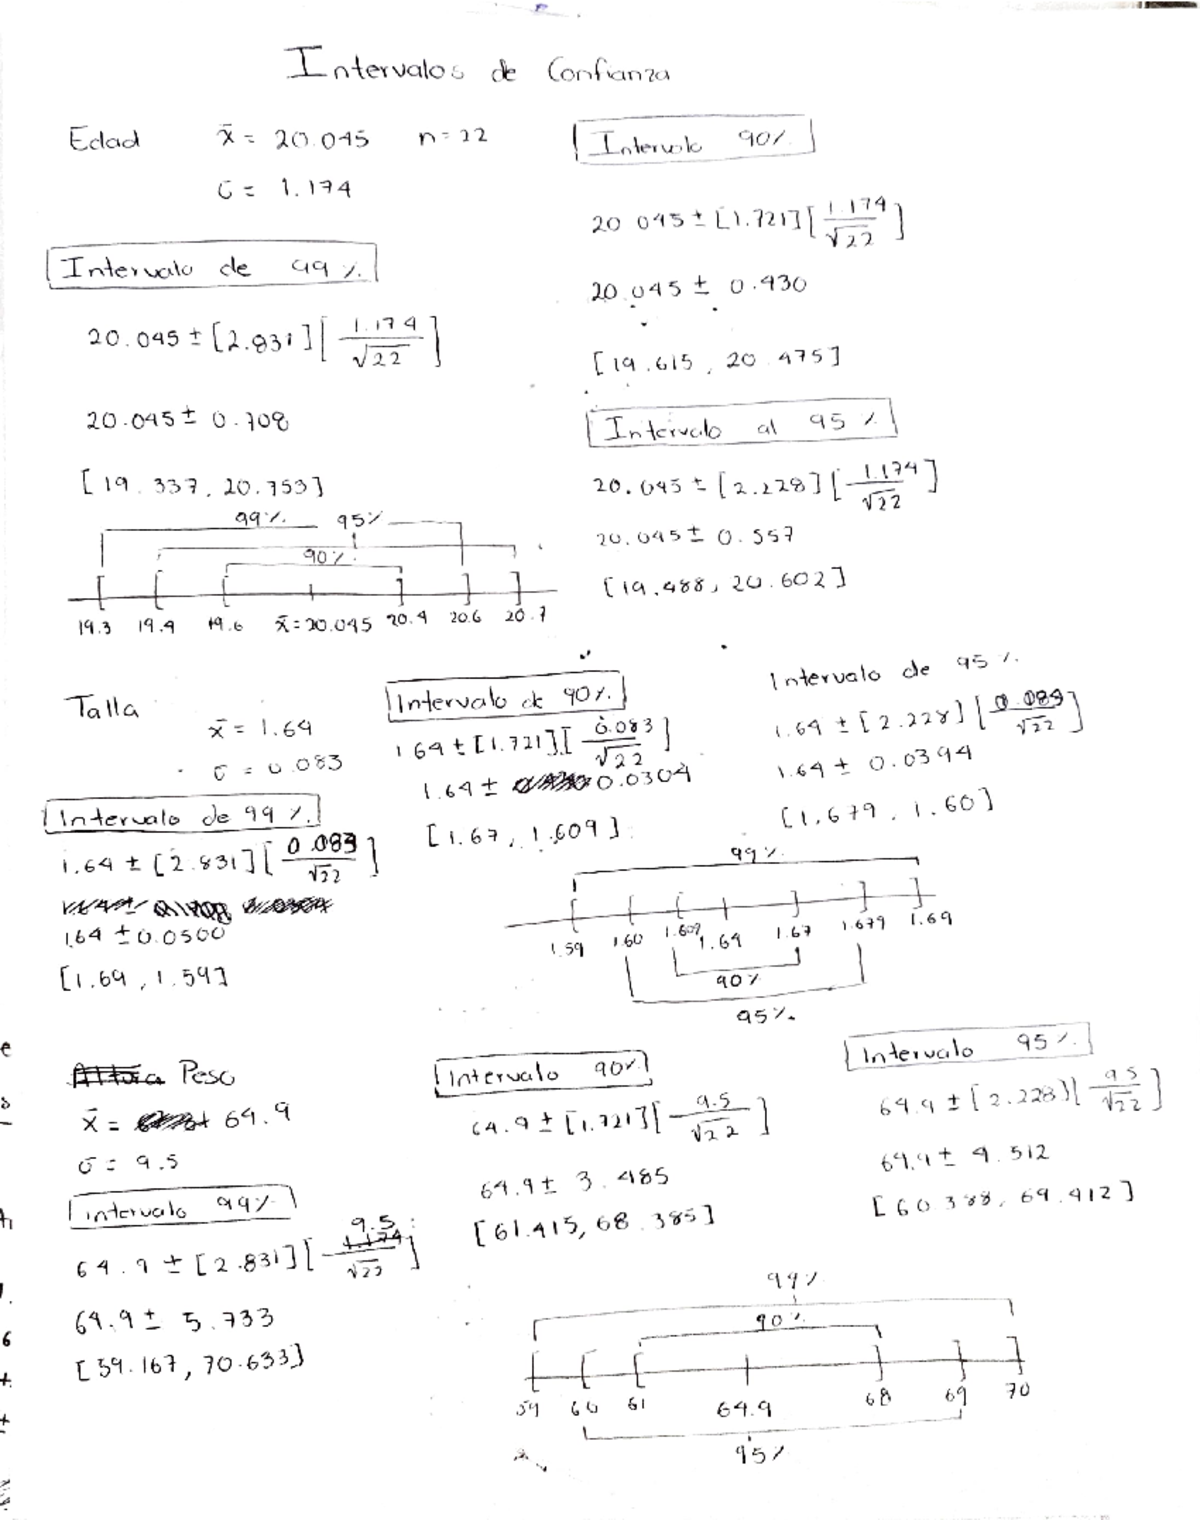 Intervalos de Confianza
Edad x̄ = 20.045 n = 22
σ = 1.174
Intervalo de 99 %.
20.045 ± [2.831] [1.174/√22]
20.045 ± 0.708
[19.337, 20.753]
99% 95%
90%
19.3 19.4 19.6 x̄ = 20.045 20.4 20.6 20.7
Intervalo 90%
20.045 ± [1.721] [1.174/√22]
20.045 ± 0.430
[19.615, 20.475]
Intervalo al 95 %
20.045 ± [2.228] [1.174/√22]
20.045 ± 0.557
[19.488, 20.602]
Talla
x̄ = 1.64
σ = 0.083
Intervalo de 99 %.
1.64 ± [2.831] [0.083/√22]
1.64 ± 0.0500
[1.69, 1.59]
Intervalo de 90%.
1.64 ± [1.721] [0.083/√22]
1.64 ± 0.0304
[1.67, 1.609]
Intervalo de 95 %.
1.64 ± [2.228] [0.083/√22]
1.64 ± 0.0394
[1.679, 1.60]
99%
1.59 1.60 1.609 1.64 1.67 1.679 1.69
90%
95%.
Peso
x̄ = 64.9
σ = 9.5
Intervalo 99%
64.9 ± [2.831] [9.5/√22]
64.9 ± 5.733
[59.167, 70.633]
Intervalo 90%
64.9 ± [1.721] [9.5/√22]
64.9 ± 3.485
[61.415, 68.385]
Intervalo 95%.
64.9 ± [2.228] [9.5/√22]
64.9 ± 4.512
[60.388, 69.412]
99%
90%
59 60 61 64.9 68 69 70
95%